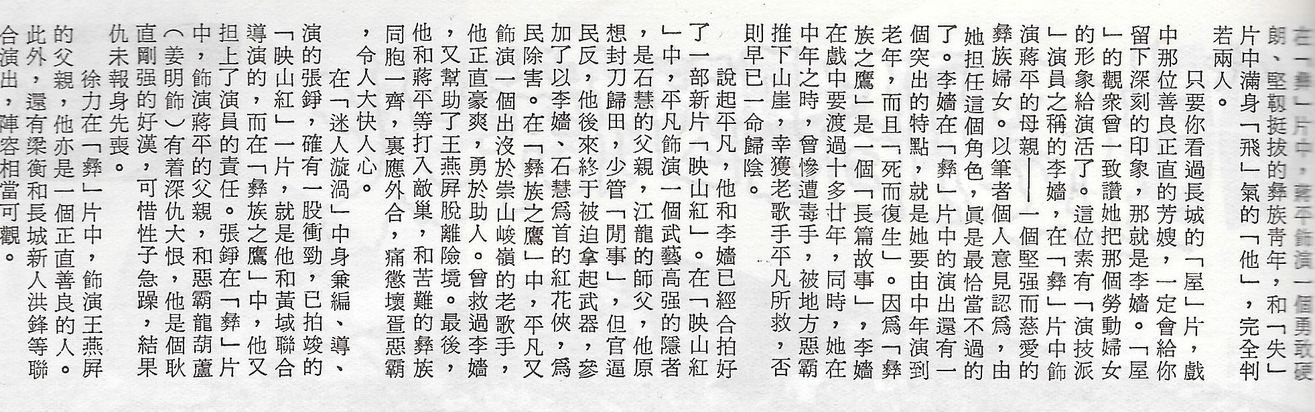 在「彝」片中，蔣平飾演一個勇敢硬
朗、堅靱挺拔的彝族青年，和「失」
片中滿身「飛」氣的「他」，完全判
若兩人。
只要你看過長城的「屋」片，戲
中那位善良正直的芳嫂，一定會給你
留下深刻的印象，那就是李嬙。「屋
」的觀衆曾一致讚她把那個勞動婦女
的形象給演活了。這位素有「演技派
」演員之稱的李嬙，在「彝」片中飾
演蔣平的母親——一個堅强而慈愛的
彝族婦女。以筆者個人意見認爲，由
她担任這個角色，眞是最恰當不過的
了。李嬙在「彝」片中的演出還有一
個突出的特點，就是她要由中年演到
老年，而且「死而復生」。因爲「彝
族之鷹」是一個「長篇故事」，李嬙
在戲中要渡過十多廿年，同時，她在
中年之時，曾慘遭毒手，被地方惡霸
推下山崖，幸獲老歌手平凡所救，否
則早已一命歸陰。
說起平凡，他和李嬙已經合拍好
了一部新片「映山紅」。在「映山紅
」中，平凡飾演一個武藝高强的隱者
，是石慧的父親，江龍的師父，他原
想封刀歸田，少管「閒事」，但官逼
民反，他後來終于被迫拿起武器，參
加了以李嬙、石慧爲首的紅花俠，爲
民除害。在「彝族之鷹」中，平凡又
飾演一個出沒於崇山峻嶺的老歌手，
他正直豪爽，勇於助人。曾救過李嬙
，又幫助了王燕屏脫離險境。最後，
他和蔣平等打入敵巢，和苦難的彝族
同胞一齊，裏應外合，痛懲壞疍惡霸
，令人大快人心。
在「迷人漩渦」中身兼編、導、
演的張錚，確有一股衝勁，已拍竣的
「映山紅」一片，就是他和黃域聯合
導演的，而在「彝族之鷹」中，他又
担上了演員的責任。張錚在「彝」片
中，飾演蔣平的父親，和惡霸龍葫蘆
（姜明飾）有着深仇大恨，他是個耿
直剛强的好漢，可惜性子急躁，結果
仇未報身先喪。
徐力在「彝」片中，飾演王燕屏
的父親，他亦是一個正直善良的人。
此外，還有梁衡和長城新人洪鋒等聯
合演出，陣容相當可觀。